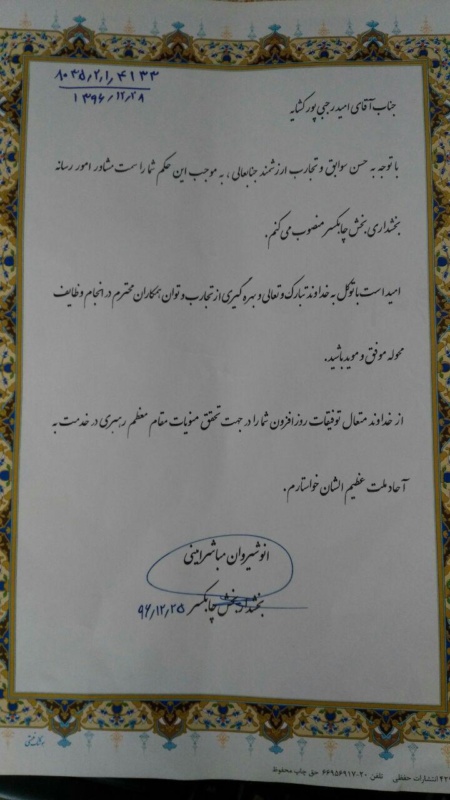 ۸۰۳۵/۲/۱/۴۱۳۳
۱۳۹۶/۱۲/۲۸
جناب آقای امید رجبی پور کشایه
با توجه به حسن سوابق و تجارب ارزشمند جنابعالی ، به موجب این حکم شما را سمت مشاور امور رسانه
بخشداری بخش چابکسر منصوب می کنم.
امید است با توکل به خداوند تبارک و تعالی و بهره گیری از تجارب و توان همکاران محترم در انجام وظایف
محوله موفق و موید باشید.
از خداوند متعال توفیقات روزافزون شما را در جهت تحقق منویات مقام معظم رهبری در خدمت به
آحاد ملت عظیم الشان خواستارم.
انوشیروان مباشرامینی
بخشدار بخش چابکسر ۹۶/۱۲/۲۵
انتشارات حفظی تلفن ۲۰-۶۶۹۵۶۹۱۷ حق چاپ محفوظ